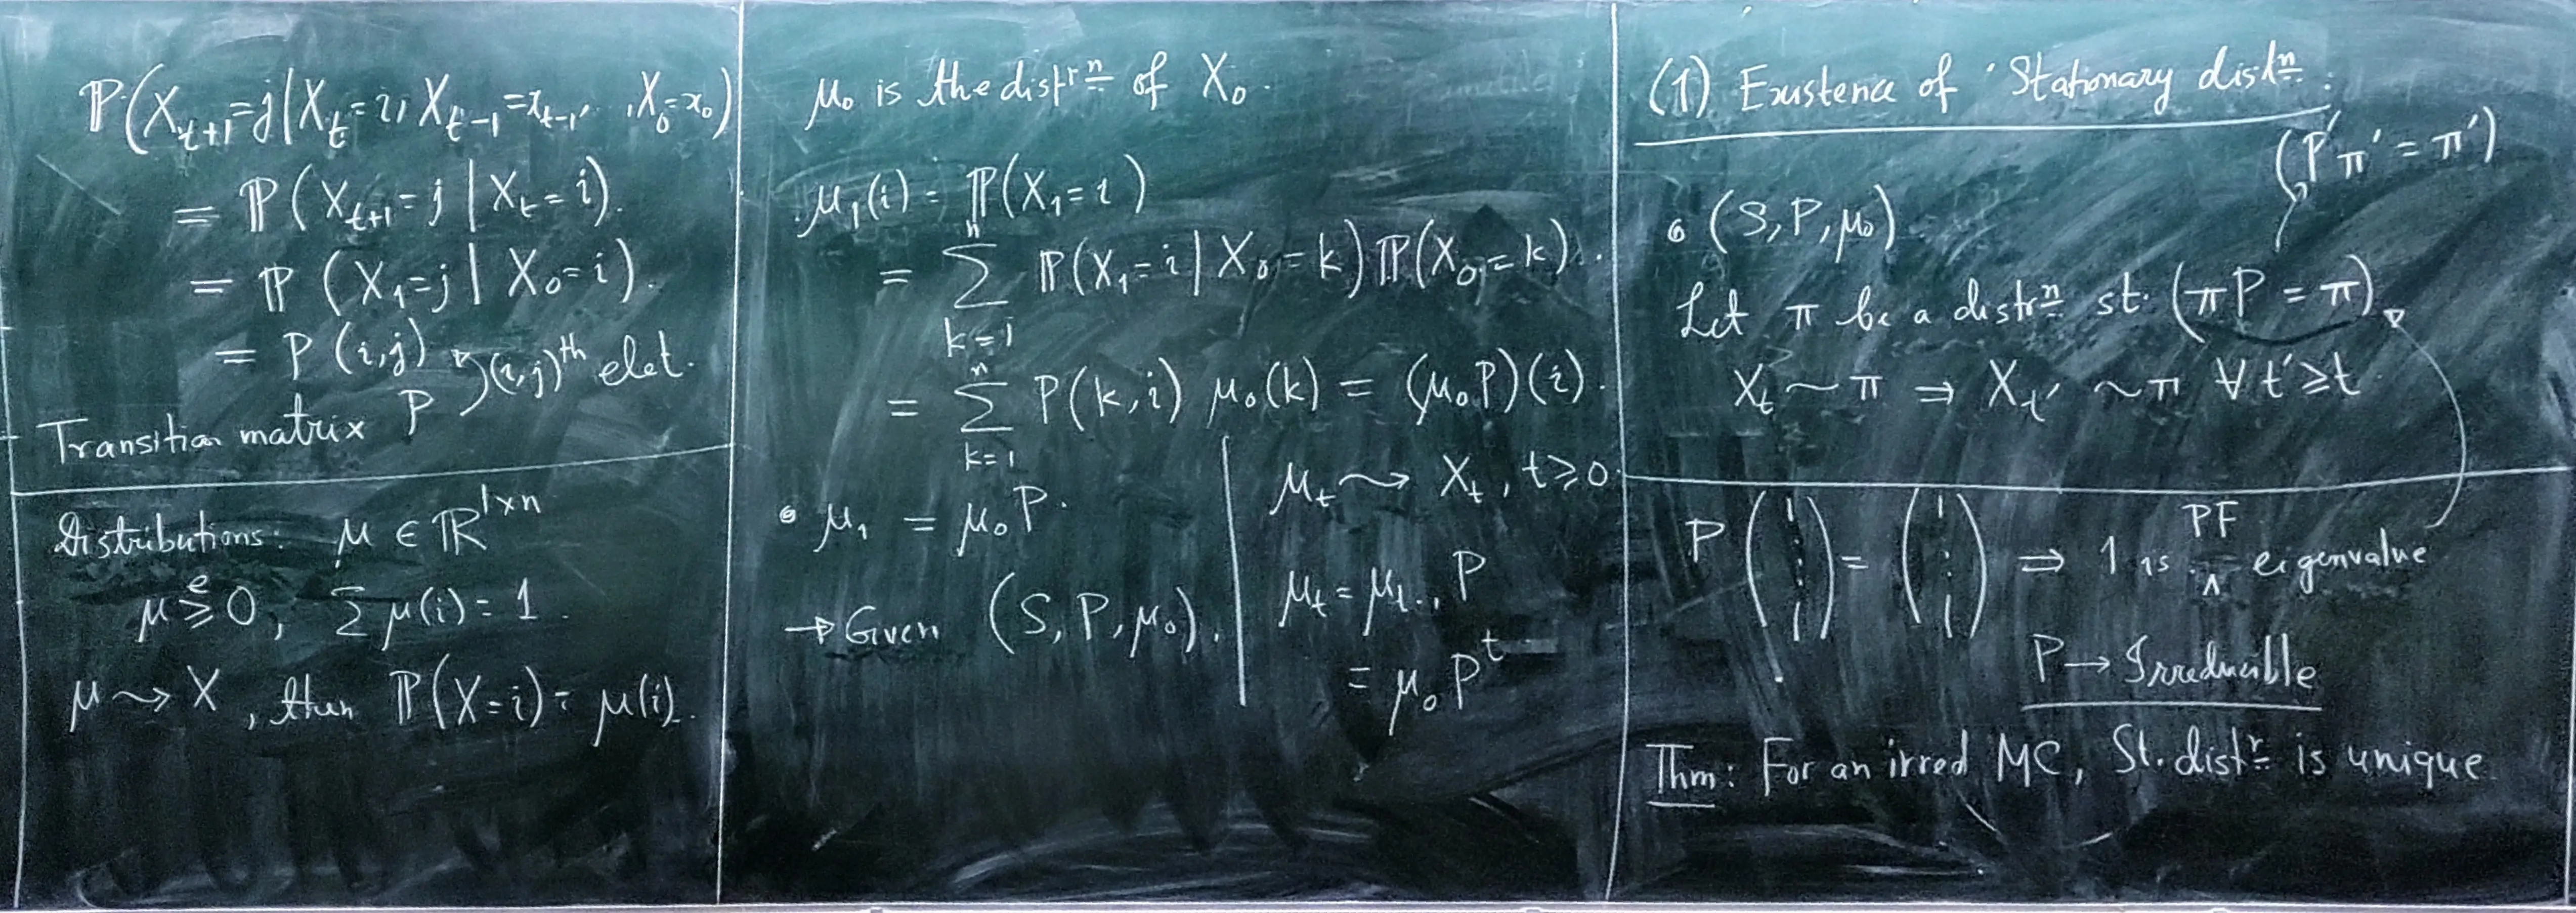 ℙ(X_{t+1}=j|X_t=i, X_{t-1}=x_{t-1}, .. ,X_0=x_0)
= ℙ(X_{t+1}=j | X_t=i).
= ℙ(X_1=j | X_0=i).
= P(i,j)
(i,j)^{th} elet.
Transition matrix P
Distributions: μ ∈ ℝ^{1×n}
μ ≥^e 0, Σ μ(i) = 1.
μ ⇝ X, then ℙ(X=i) = μ(i).
μ_0 is the distr^n of X_0.
μ_1(i) = ℙ(X_1=i)
= Σ_{k=1}^{n} ℙ(X_1=i | X_0=k) ℙ(X_0=k).
= Σ_{k=1}^{n} P(k,i) μ_0(k) = (μ_0P)(i).
• μ_1 = μ_0P.
→ Given (S, P, μ_0).
μ_t ⇝ X_t, t≥0
μ_t = μ_{t-1} P
= μ_0 P^t
(1) Existence of Stationary dist^n.
(P'π' = π')
• (S, P, μ_0)
Let π be a distr^n st. (πP = π)
X_t ∼ π ⇒ X_{t'} ∼ π ∀ t' ≥ t
P (1 ⋮ 1) = (1 ⋮ 1) ⇒ 1 is PF eigenvalue
P → Irreducible
Thm: For an irred MC, St. dist^r is unique